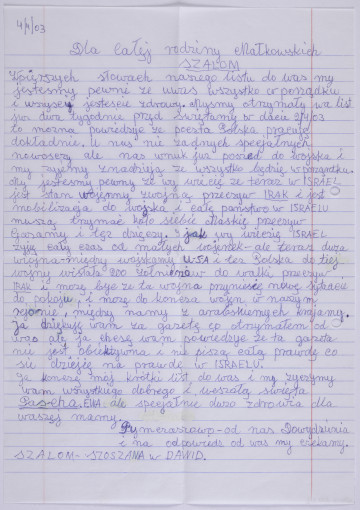 4/III/03
Dla całej rodziny Małkowskich
SZALOM
W pierszych słowach naszego listu do was my
jestesmy pewni ze u was wszystko w porządku
i wszyscy jestescie zdrowy. Mysmy otrzymały wa list
juz dwa tygodnie przed
to można powiedzie ze poczta Polska pracuje
dokładnie. U nas nie żadnych specjalnych
nowoscy ale nas wnuk już poszed do wojska i
my żyjemy z nadzieją ze wszystko będzie w porządku.
My jestesmy pewny ze wy wiecie ze teraz w ISRAEL
jest stan wojenny z wojną przeciw IRAK i jest
mobilizacja do wojska i całe państwo w ISRAELU
muszą trzymać koło siebie maskię przeciw
Gazamy i też dzieczy. Jak wy wiecie ISRAEL
żyją cały czas od małych wojenek - ale teraz duza
wojna - między wojskamy USA i tez Polska do tej
wojny wysłała 200 żołnierzów do walki przeciw
IRAK i może byc ze ta wojna przyniesie nowe
do pokoju, i może do koniesa wojn w naszym
rejonie, między namy z arabskiemych krajamy.
Ja dziękuję wam za gazetę co otrzymałem od
was ale ja chcesę wam powiedzie ze ta gazeta
nie jest obiektywna i nie piszą całą prawdę co
się dzieję na prawdę w ISRAELU.
Ja konczę mój krótki list do was i my zyczymy
wam wszystkiego dobrego i wesołą swięsta
Pascha, EWA ale specjalnie duzo zdrowia dla
waszej mamy.
od nas Dowydzinia
i na odpowiedz od was my czekamy.
SZALOM - SZOSZANA w DAWID.